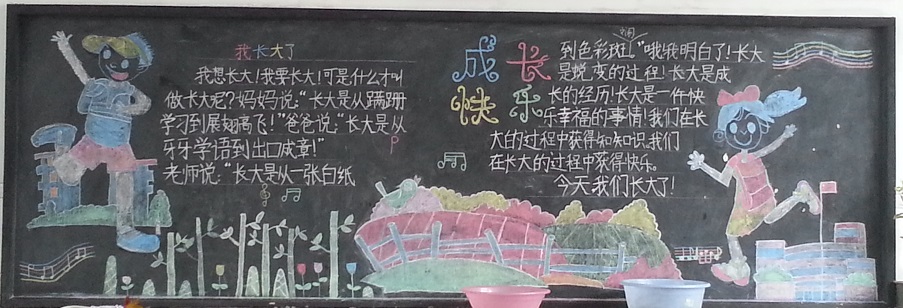 我长大了
我想长大！我要长大！可是什么才叫
做长大呢？妈妈说：“长大是从蹒跚
学习到展翅高飞！”爸爸说：“长大是从
牙牙学语到出口成章！”
老师说：“长大是从一张白纸
成长
快乐
到色彩斑斓。”哦！我明白了！长大
是蜕变的过程！长大是成
长的经历！长大是一件快
乐幸福的事情！我们在长
大的过程中获得知知识，我们
在长大的过程中获得快乐。
今天，我们长大了！